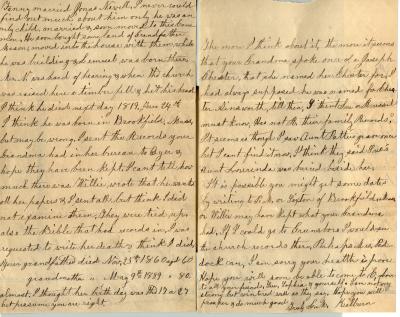 Fanny married Jonas Nevill. I never could
find out much about him only he was an
only child, married & soon moved to this
men, He soon bought some land of Grandfather
moved into the house with them, while
he was building & Lemuel was born there
Mr. N was hard of hearing & when the church
was raised here a timber fell & hit his head
I think he died next day 1819, June 24th
I think he was born in Brookfield, Mass,
but may be wrong, I sent the Records your
Grandma had in her bureau to Byer &
hope they have been kept. I cant tell how
much there was. Willie wrote that he wanted
all her papers & I sent all but think I did
not examine them, They were tied up,
also the Bible that had records in, I was
requested to write her death & think I did,
Your grandfather died Nov, 25th 1860 aged 60
grandmother " May 9th 1889 " 80
almost, I thought her birth day was the 17 or 27
but presume you are right
The more I think about it, the more it seems
that your Grandma spoke one of a Joseph
Chester, that she named her Chester for, I
had always supposed he was named for Ches-
ter Ainsworth, till then, I think
must know, Has not he their family Records?
It seems as though I saw Aunt Pattie's grave once
but I cant find it now, I think they said
Aunt Lorrinda was buried beside her,
It is possible you might get some dates
by writing to Clerk or Sexton of Brookfield, Mass,
or Willie may have kept what your Grandma
had, If I could go to Greensboro I would see
the church records there, Perhaps Mrs.
dock can, I am sorry your health is poor
Hope you will soon be able to come to
to all your friends, Yours, Sophia & yourself & I am not very
strong but can
much good
Kilburn